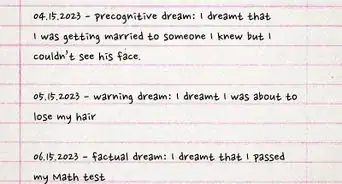 04.15.2023 - precognitive dream: I dreamt that
I was getting married to someone I knew but I
couldn't see his face.
05.15.2023 - warning dream: I dreamt I was about to
lose my hair
06.15.2023 - factual dream: I dreamt that I passed
my Math test